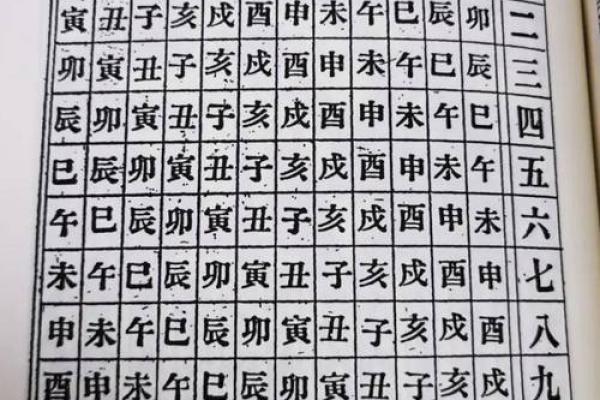 寅 丑 子 亥 戌 酉 申 未 午 巳 辰 卯 二
卯 寅 丑 子 亥 戌 酉 申 未 午 巳 辰 三
辰 卯 寅 丑 子 亥 戌 酉 申 未 午 巳 四
巳 辰 卯 寅 丑 子 亥 戌 酉 申 未 午 五
午 巳 辰 卯 寅 丑 子 亥 戌 酉 申 未 六
未 午 巳 辰 卯 寅 丑 子 亥 戌 酉 申 七
申 未 午 巳 辰 卯 寅 丑 子 亥 戌 酉 八
酉 申 未 午 巳 辰 卯 寅 丑 子 亥 戌 九